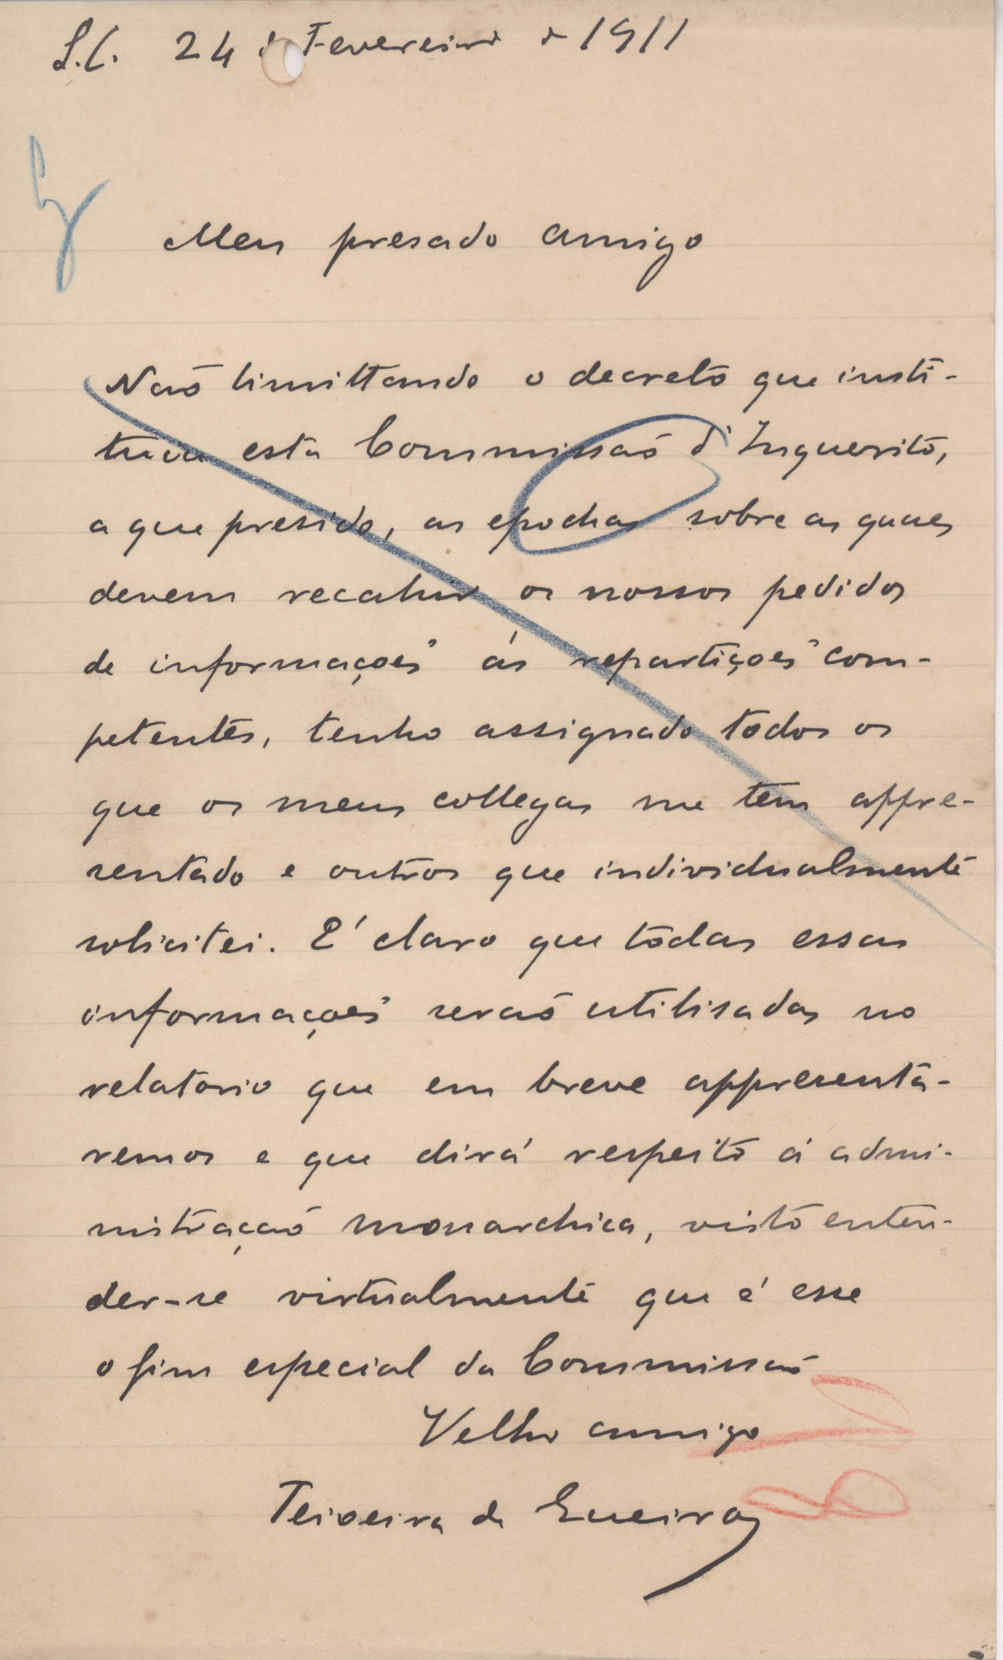 S.C. 24 de Fevereiro de 1911
Meu presado amigo
Naõ limittando o decreto que insti-
tuiu esta Commissaõ d'Inquerito,
a que presido, as epochas sobre as quaes
devem recahir os nossos pedidos
de informaçoẽs ás repartiçoẽs com-
petentes, tenho assignado todos os
que os meus collegas me tem appre-
sentado e outros que individualmente
solicitei. É claro que todas essas
informaçoẽs seraõ utilisadas no
relatorio que em breve appresenta-
remos e que dirá respeito á admi-
nistraçaõ monarchica, visto enten-
der-se virtualmente que é esse
o fim especial da Commissaõ
Velho amigo
Teixeira de Queiroz